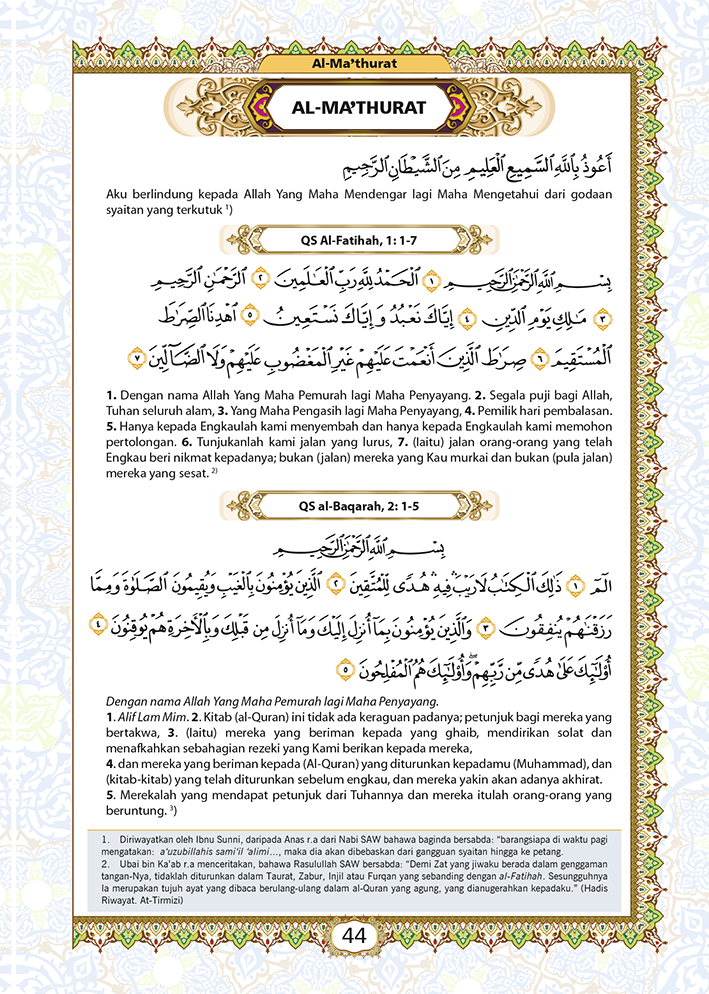 Al-Ma'thurat
AL-MA'THURAT
أَعُوذُ بِاللَّهِ السَّمِيعِ الْعَلِيمِ مِنَ الشَّيْطَانِ الرَّجِيمِ
Aku berlindung kepada Allah Yang Maha Mendengar lagi Maha Mengetahui dari godaan
syaitan yang terkutuk ¹)
QS Al-Fatihah, 1: 1-7
بِسْمِ اللَّهِ الرَّحْمَٰنِ الرَّحِيمِ ١ الْحَمْدُ لِلَّهِ رَبِّ الْعَالَمِينَ ٢ الرَّحْمَٰنِ الرَّحِيمِ
٣ مَالِكِ يَوْمِ الدِّينِ ٤ إِيَّاكَ نَعْبُدُ وَإِيَّاكَ نَسْتَعِينُ ٥ اهْدِنَا الصِّرَاطَ
الْمُسْتَقِيمَ ٦ صِرَاطَ الَّذِينَ أَنْعَمْتَ عَلَيْهِمْ غَيْرِ الْمَغْضُوبِ عَلَيْهِمْ وَلَا الضَّالِّينَ ٧
1. Dengan nama Allah Yang Maha Pemurah lagi Maha Penyayang. 2. Segala puji bagi Allah,
Tuhan seluruh alam, 3. Yang Maha Pengasih lagi Maha Penyayang, 4. Pemilik hari pembalasan.
5. Hanya kepada Engkaulah kami menyembah dan hanya kepada Engkaulah kami memohon
pertolongan. 6. Tunjukanlah kami jalan yang lurus, 7. (Iaitu) jalan orang-orang yang telah
Engkau beri nikmat kepadanya; bukan (jalan) mereka yang Kau murkai dan bukan (pula jalan)
mereka yang sesat. ²)
QS al-Baqarah, 2: 1-5
بِسْمِ اللَّهِ الرَّحْمَٰنِ الرَّحِيمِ
الم ١ ذَٰلِكَ الْكِتَابُ لَا رَيْبَ ۛ فِيهِ ۛ هُدًى لِلْمُتَّقِينَ ٢ الَّذِينَ يُؤْمِنُونَ بِالْغَيْبِ وَيُقِيمُونَ الصَّلَاةَ وَمِمَّا
رَزَقْنَاهُمْ يُنْفِقُونَ ٣ وَالَّذِينَ يُؤْمِنُونَ بِمَا أُنْزِلَ إِلَيْكَ وَمَا أُنْزِلَ مِنْ قَبْلِكَ وَبِالْآخِرَةِ هُمْ يُوقِنُونَ ٤
أُولَٰئِكَ عَلَىٰ هُدًى مِنْ رَبِّهِمْ ۖ وَأُولَٰئِكَ هُمُ الْمُفْلِحُونَ ٥
Dengan nama Allah Yang Maha Pemurah lagi Maha Penyayang.
1. Alif Lam Mim. 2. Kitab (al-Quran) ini tidak ada keraguan padanya; petunjuk bagi mereka yang
bertakwa, 3. (Iaitu) mereka yang beriman kepada yang ghaib, mendirikan solat dan
menafkahkan sebahagian rezeki yang Kami berikan kepada mereka,
4. dan mereka yang beriman kepada (Al-Quran) yang diturunkan kepadamu (Muhammad), dan
(kitab-kitab) yang telah diturunkan sebelum engkau, dan mereka yakin akan adanya akhirat.
5. Merekalah yang mendapat petunjuk dari Tuhannya dan mereka itulah orang-orang yang
beruntung. ³)
1. Diriwayatkan oleh Ibnu Sunni, daripada Anas r.a dari Nabi SAW bahawa baginda bersabda: "barangsiapa di waktu pagi
mengatakan: a'uzubillahis sami'il 'alimi..., maka dia akan dibebaskan dari gangguan syaitan hingga ke petang.
2. Ubai bin Ka'ab r.a menceritakan, bahawa Rasulullah SAW bersabda: "Demi Zat yang jiwaku berada dalam genggaman
tangan-Nya, tidaklah diturunkan dalam Taurat, Zabur, Injil atau Furqan yang sebanding dengan al-Fatihah. Sesungguhnya
Ia merupakan tujuh ayat yang dibaca berulang-ulang dalam al-Quran yang agung, yang dianugerahkan kepadaku." (Hadis
Riwayat. At-Tirmizi)
44